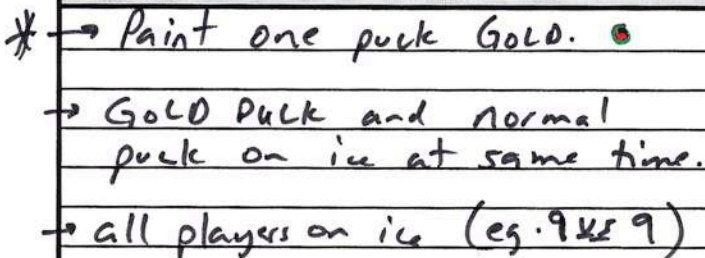 * → Paint one puck GOLD.
→ GOLD PUCK and normal
puck on ice at same time.
→ all players on ice (eg. 9 vs 9)